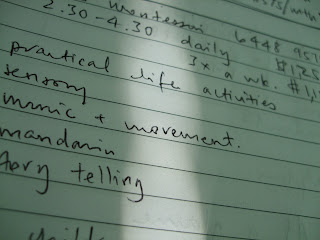 montessori 6448 957
2.30-4.30 daily $125
3x a wk. $1,
practical life activities
sensory
music + movement.
mandarin
tory telling